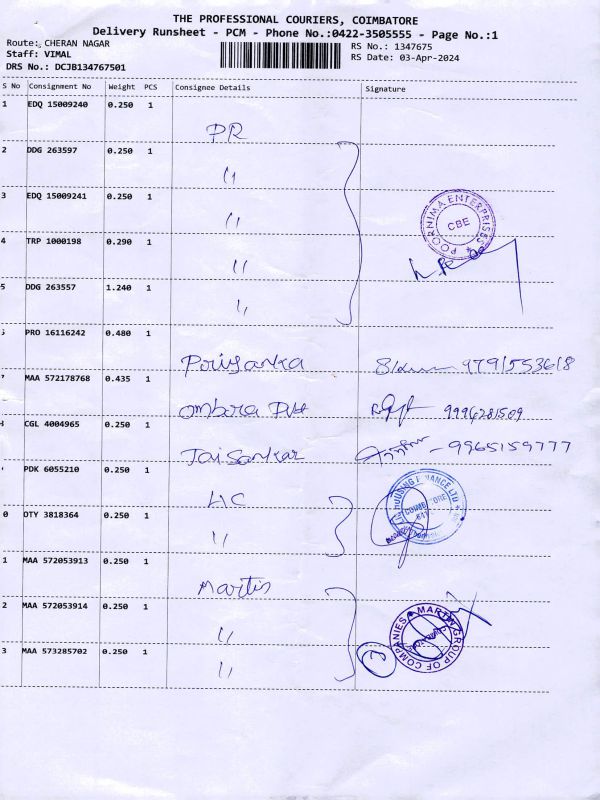 THE PROFESSIONAL COURIERS, COIMBATORE
Delivery Runsheet - PCM - Phone No.:0422-3505555 - Page No.:1
Route: CHERAN NAGAR
RS No.: 1347675
Staff: VIMAL
RS Date: 03-Apr-2024
DRS No.: DCJB134767501
S No Consignment No Weight PCS Consignee Details Signature
1 EDQ 15009240 0.250 1
PR
2 DDG 263597 0.250 1
''
3 EDQ 15009241 0.250 1
''
POORNIMA ENTERPRISES
CBE
4 TRP 1000198 0.290 1
''
5 DDG 263557 1.240 1
''
PRO 16116242 0.480 1
Priyanka 9791553618
MAA 572178768 0.435 1
ombra Pvt 9994281509
CGL 4004965 0.250 1
Jaisankar - 9965159777
PDK 6055210 0.250 1
LIC
HOUSING FINANCE LTD
COIMBATORE
0 OTY 3818364 0.250 1
''
1 MAA 572053913 0.250 1
Martin
2 MAA 572053914 0.250 1
''
MARTIN GROUP OF COMPANIES
3 MAA 573285702 0.250 1
''